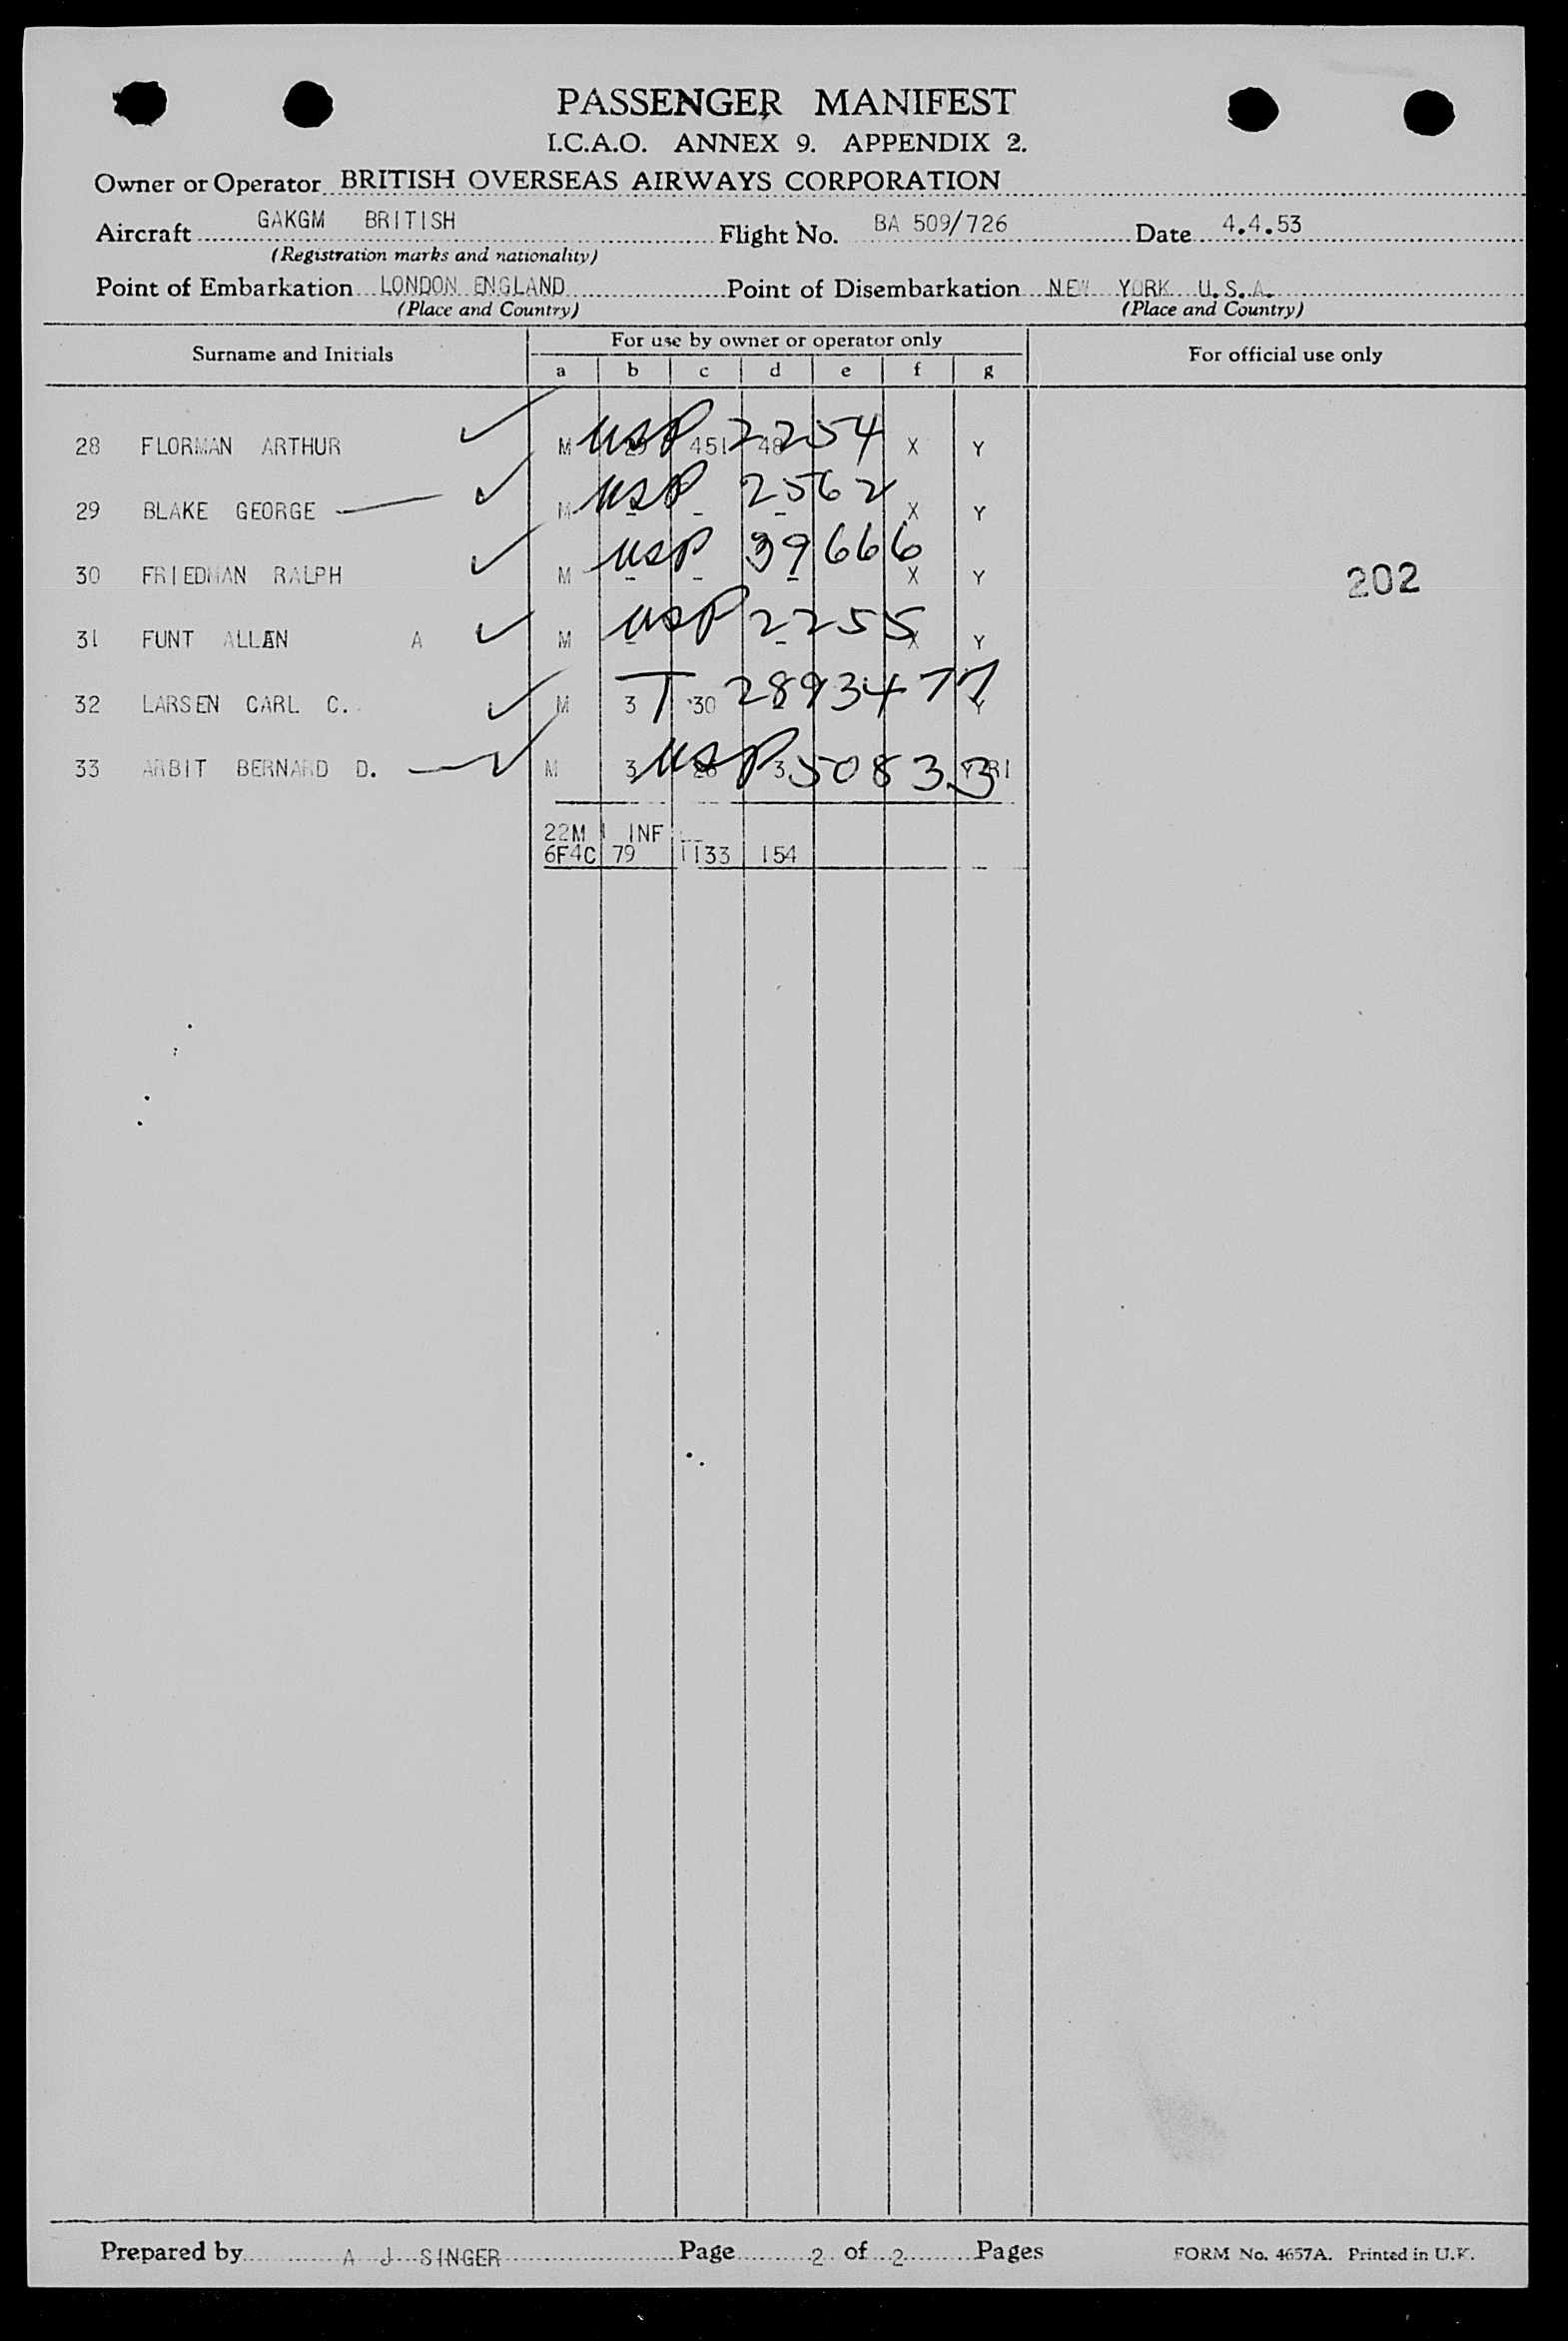 PASSENGER MANIFEST
I.C.A.O. ANNEX 9. APPENDIX 2.
Owner or Operator BRITISH OVERSEAS AIRWAYS CORPORATION
Aircraft GAKGM BRITISH Flight No. BA 509/726 Date 4.4.53
(Registration marks and nationality)
Point of Embarkation LONDON ENGLAND Point of Disembarkation NEW YORK U.S.A.
(Place and Country) (Place and Country)
Surname and Initials For use by owner or operator only For official use only
a b c d e f g
28 FLORMAN ARTHUR M USP 2254 451 48 X Y
29 BLAKE GEORGE M USP 2562 - - - X Y
30 FRIEDMAN RALPH M USP 39666 - - - X Y
202
31 FUNT ALLEN A M USP 2255 - - X Y
32 LARSEN CARL C. M 3 T 30 2893477 Y
33 ARBIT BERNARD D. M 3 USP 28 3 50833
22M 1 INF
6F4C 79 1133 154
Prepared by A J SINGER Page 2 of 2 Pages FORM No. 4657A. Printed in U.K.